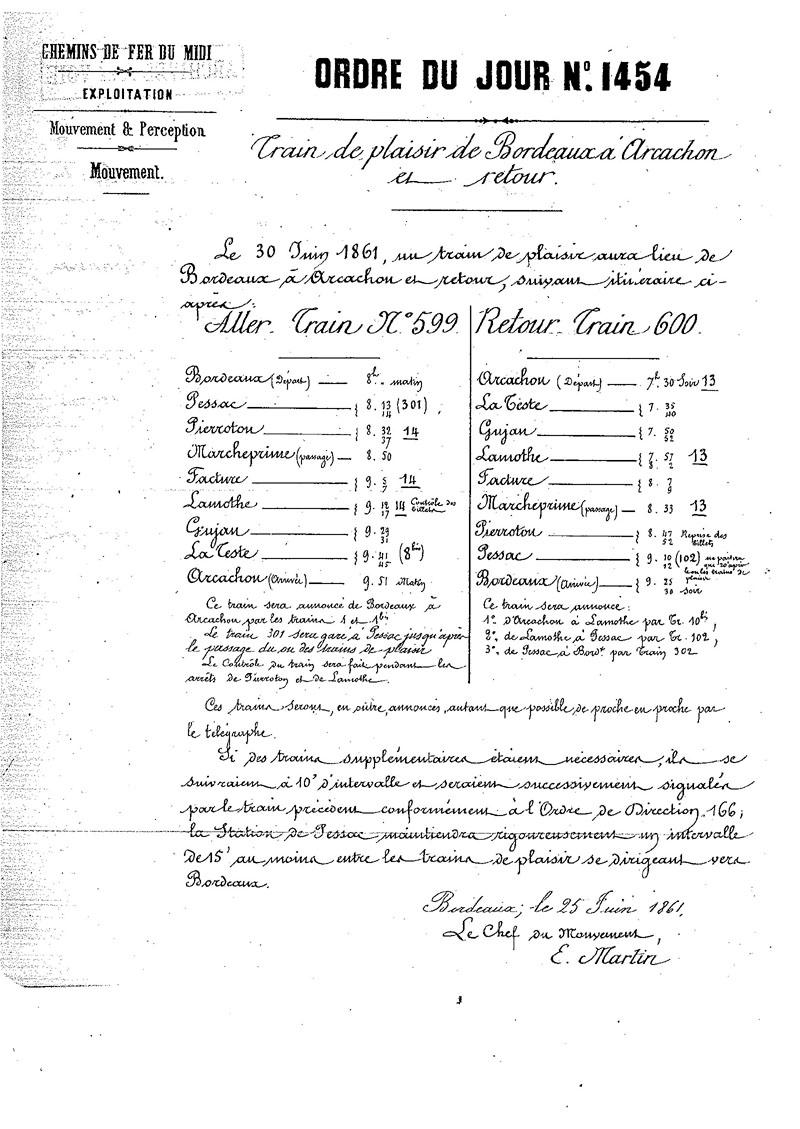 CHEMINS DE FER DU MIDI
EXPLOITATION
Mouvement & Perception
Mouvement.
ORDRE DU JOUR Nº. 1454
Train de plaisir de Bordeaux à Arcachon
et retour.
Le 30 Juin 1861, un train de plaisir aura lieu de
Bordeaux à Arcachon et retour, suivant itinéraire ci-
après :
Aller. Train Nº 599
Bordeaux (Départ) — 8h. " matin
Pessac — 8. 13 14 (301) ;
Pierroton — 8. 32 37 14
Marcheprime (passage) — 8. 50
Facture — 9. 5 7 14
Lamothe — 9. 12 17 14 Contrôle des billets
Gujan — 9. 29 31
La Teste — 9. 41 45 (8bis)
Arcachon (Arrivée) — 9. 51 Matin
Ce train sera annoncé de Bordeaux à
Arcachon par les trains 1 et 1bis
Le train 301 sera garé à Pessac jusqu'après
le passage du ou des trains de plaisir
Le Contrôle du train sera fait pendant les
arrêts de Pierroton et de Lamothe.
Retour. Train 600.
Arcachon (Départ) — 7h. 30 Soir 13
La Teste — 7. 35 40
Gujan — 7. 50 52
Lamothe — 7. 57 8. 2 13
Facture — 8. 7 9
Marcheprime (passage) — 8. 33 13
Pierroton — 8. 47 52 Reprise des billets
Pessac — 9. 10 12 (102) ne partira que 20' après tous les trains de plaisir
Bordeaux (Arrivée) — 9. 25 30 soir
Ce train sera annoncé :
1º. d'Arcachon à Lamothe par Tr. 10bis,
2º. de Lamothe à Pessac par Tr. 102,
3º. de Pessac à Bordx par Train 302
Ces trains seront, en outre, annoncés, autant que possible, de proche en proche par
le télégraphe.
Si des trains supplémentaires étaient nécessaires, ils se
suivraient à 10' d'intervalle et seraient successivement signalés
par le train précédent conformément à l'Ordre de Direction 166 ;
la Station de Pessac maintiendra rigoureusement un intervalle
de 15' au moins entre les trains de plaisir se dirigeant vers
Bordeaux.
Bordeaux, le 25 Juin 1861,
Le Chef du Mouvement,
E. Martin